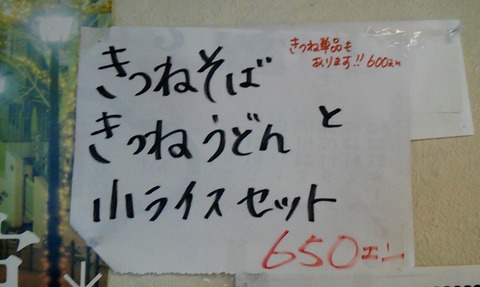 きつね単品も
あります!! 600エン
きつねそば
きつねうどん と
小ライスセット
650エン